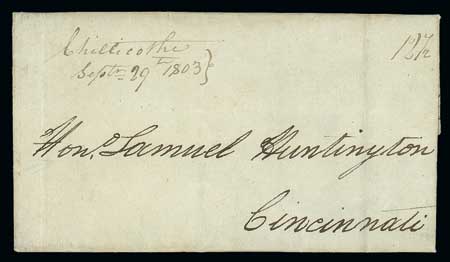 Chillicothe
Septr. 29th 1803}
12½
Hono. Samuel Huntington
Cincinnati